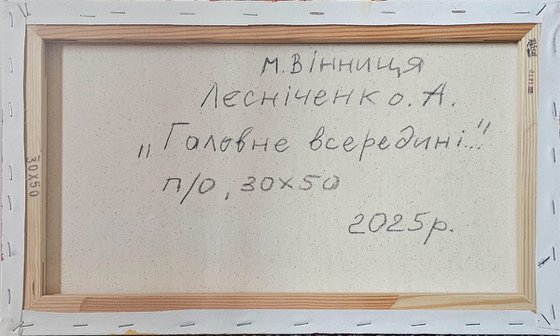 м. Вінниця
Лесніченко. А.
„Головне всередині..."
п/о, 30х50
2025р.
30X50